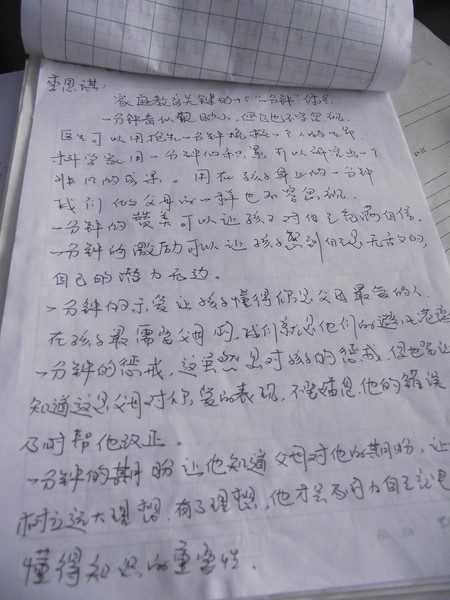 李思谋:
家庭教育关键的十个“一分钟”体会
一分钟看似短的,但它也不容忽视
医生可以用抢先一分钟挽救一个人的生命
科学家用一分钟的积累可以研究出一个
的成果。用在孩子身上的一分钟
我们做父母的一样也不容忽视
一分钟的赞美可以让孩子对自己充满自信。
一分钟的激励可以让孩子感到自己是无敌的,
自己的潜力无边。
一分钟的示爱让孩子懂得你是父母最爱的人
在孩子最需要父母时,我们就是他们的避风港湾
一分钟的惩戒,这虽然是对孩子的惩戒,但也要让
知道这是父母对你爱的表现,不管错是他的错误
及时帮他改正。
一分钟的期盼让他知道父母对他的期盼,让
树立远大理想,有了理想,他才会努力
懂得知识的重要性.